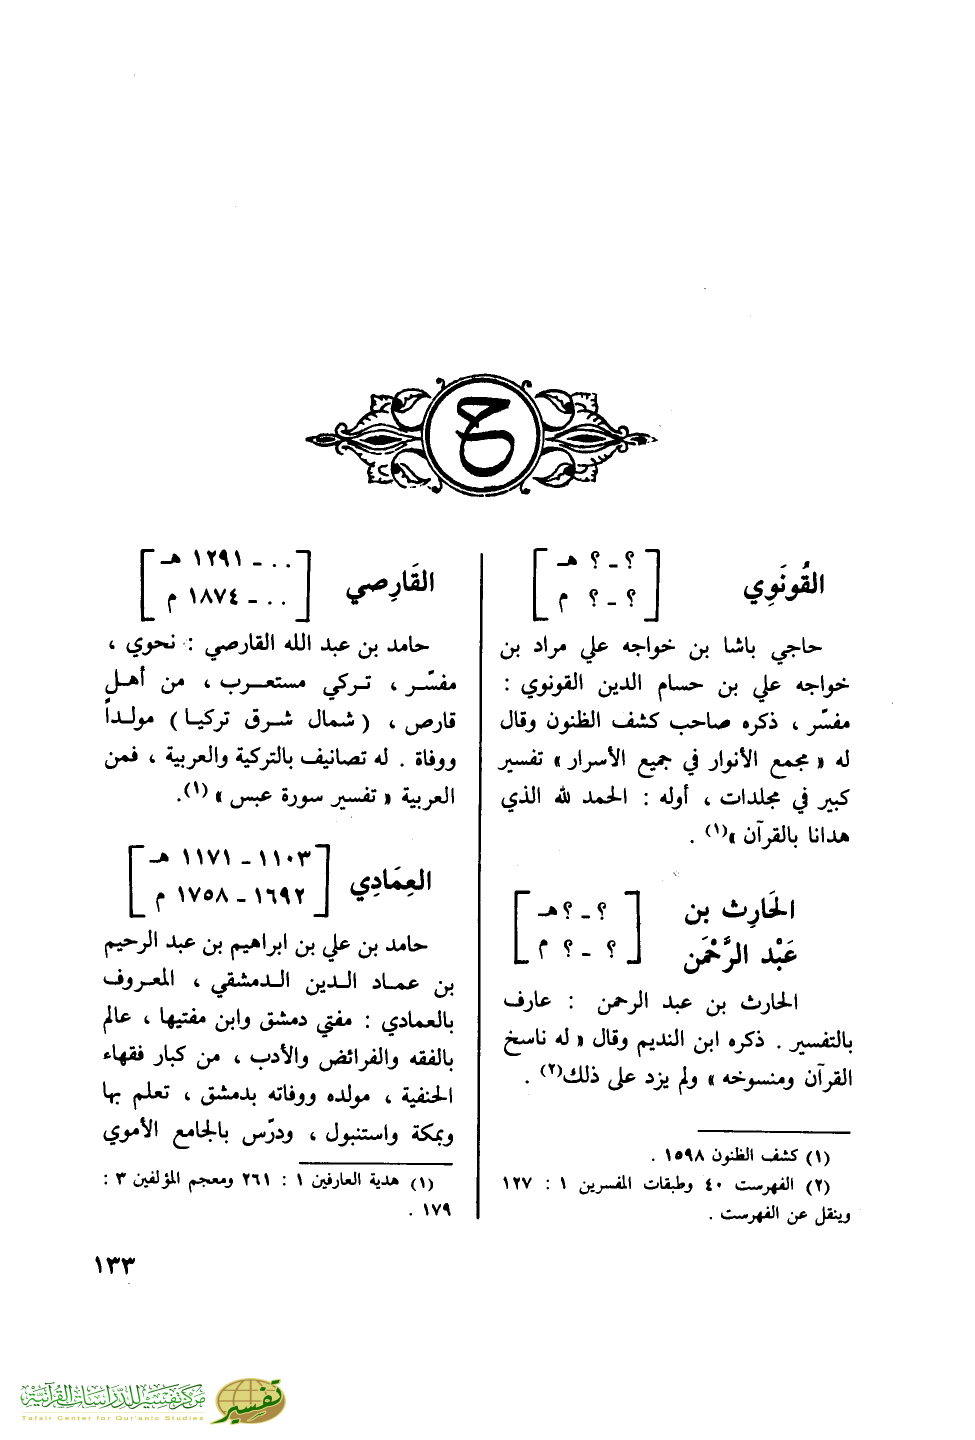 ح
القُونَوِي
[ ؟ ـ ؟ هـ
؟ ـ ؟ م ]
حاجي باشا بن خواجه علي مراد بن
خواجه علي بن حسام الدين القونوي :
مفسّر ، ذكره صاحب كشف الظنون وقال
له « مجمع الأنوار في جميع الأسرار » تفسير
كبير في مجلدات ، أوله : الحمد لله الذي
هدانا بالقرآن »(١) .
الحَارِث بن
عَبْد الرَّحْمَن
[ ؟ ـ ؟ هـ
؟ ـ ؟ م ]
الحارث بن عبد الرحمن : عارف
بالتفسير . ذكره ابن النديم وقال « له ناسخ
القرآن ومنسوخه » ولم يزد على ذلك(٢) .
(١) كشف الظنون ١٥٩٨ .
(٢) الفهرست ٤٠ وطبقات المفسرين ١ : ١٢٧
وينقل عن الفهرست .
القَارِصي
[ .. ـ ١٢٩١ هـ
.. ـ ١٨٧٤ م ]
حامد بن عبد الله القارصي : نحوي ،
مفسّر ، تركي مستعرب ، من أهل
قارص ، (شمال شرق تركيا) مولداً
ووفاة . له تصانيف بالتركية والعربية ، فمن
العربية « تفسير سورة عبس » (١).
العِمَادِي
[ ١١٠٣ ـ ١١٧١ هـ
١٦٩٢ ـ ١٧٥٨ م ]
حامد بن علي بن ابراهيم بن عبد الرحيم
بن عماد الدين الدمشقي ، المعروف
بالعمادي : مفتي دمشق وابن مفتيها ، عالم
بالفقه والفرائض والأدب ، من كبار فقهاء
الحنفية ، مولده ووفاته بدمشق ، تعلم بها
وبمكة واستنبول ، ودرّس بالجامع الأموي
(١) هدية العارفين ١ : ٢٦١ ومعجم المؤلفين ٣ :
١٧٩ .
١٣٣
مركز تفسير للدراسات القرآنية
Tafsir Center for Qur'anic Studies
تفسير